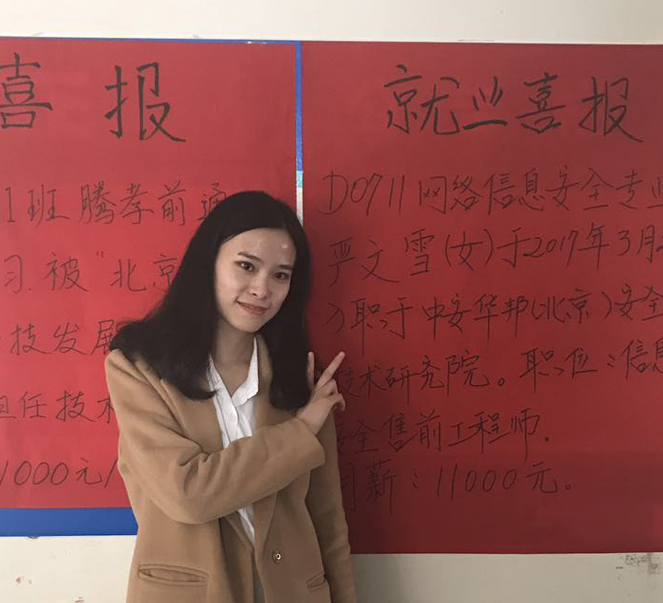 喜报
1班 腾孝前 通
习 被“北京
技发展
担任技术
1000元/
就业喜报
D0711网络信息安全专业
严文雪(女)于2017年3月
入职于中安华邦(北京)安全
技术研究院。职位:信息
全售前工程师.
月薪:11000元。